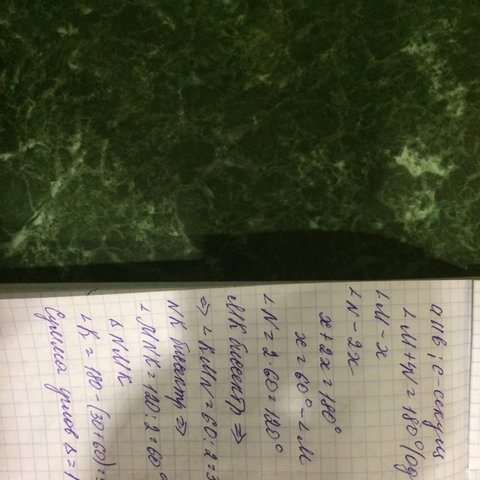 a॥b; c-секущ
∠M+∠N=180°
∠M-x
∠N-2x
x+2x=180°
x=60°-∠M
∠N=2·60=120°
MK биссект ⇒
⇒ ∠KMN=60:2=3
NK биссект ⇒
∠MNK=120:2=60°
Δ NMK
∠K=180-(30+60)=
Сумма углов Δ=1